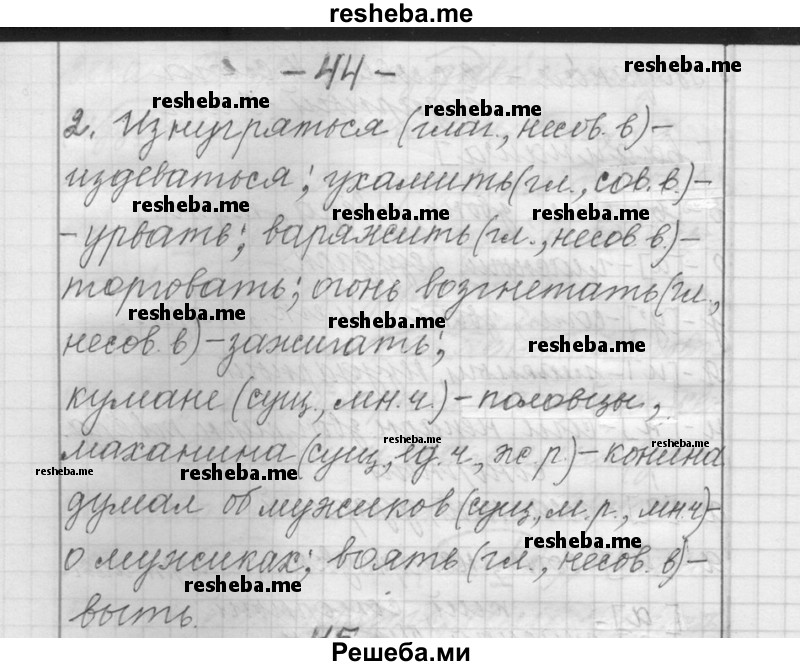 resheba.me
- 44 -
resheba.me
resheba.me
resheba.me
2. Изнуряться (глаг., несов. в) -
издеваться; ухамить (гл., сов. в.) -
resheba.me
resheba.me
resheba.me
- урвать; варяжить (гл., несов. в) -
торговать; огонь возгнетать (гл.,
resheba.me
resheba.me
resheba.me
несов. в) - зажигать;
кумане (сущ., мн. ч.) - половцы,
resheba.me
resheba.me
махaнина (сущ., ед. ч., ж. р.) - конина
resheba.me
resheba.me
думал об мужиков (сущ., м. р., мн. ч) -
resheba.me
о мужиках; воять (гл., несов. в) -
resheba.me
выть.
45
Решеба.ми